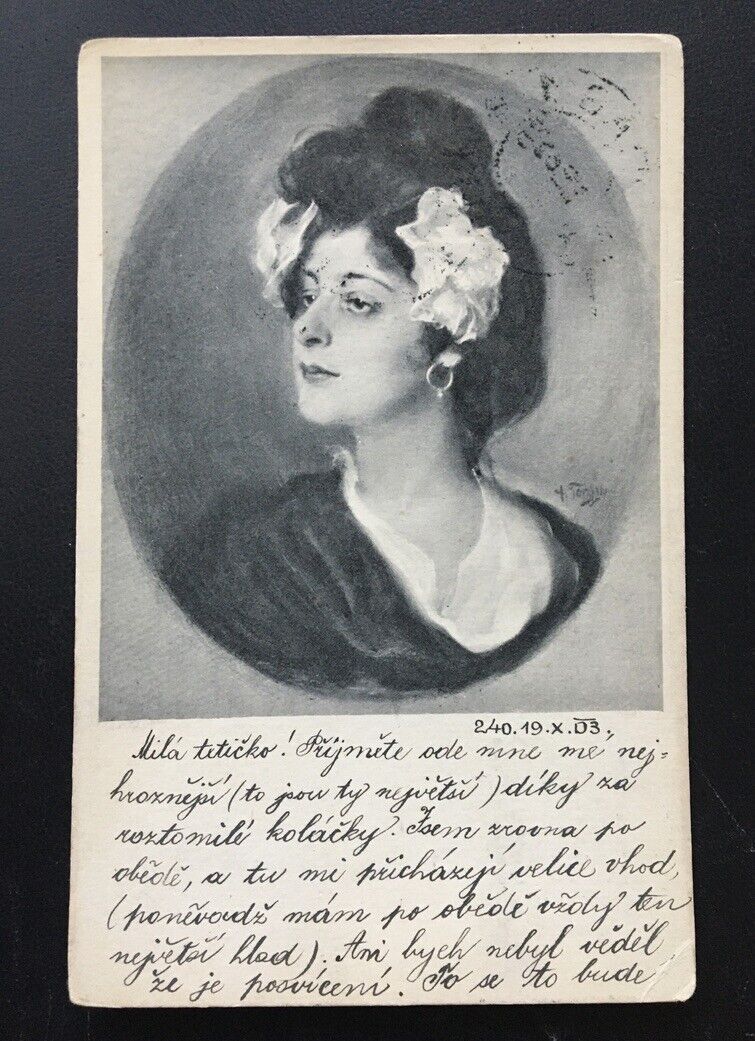 240.19.X.03.
Milá tetičko! Přijměte ode mne mé nej-
hroznější (to jsou ty největší) díky za
roztomilé koláčky. Jsem zrovna po
obědě, a tu mi přicházejí velice vhod,
(poněvadž mám po obědě vždy ten
největší hlad). Ani bych nebyl věděl
že je posvícení. To se to bude